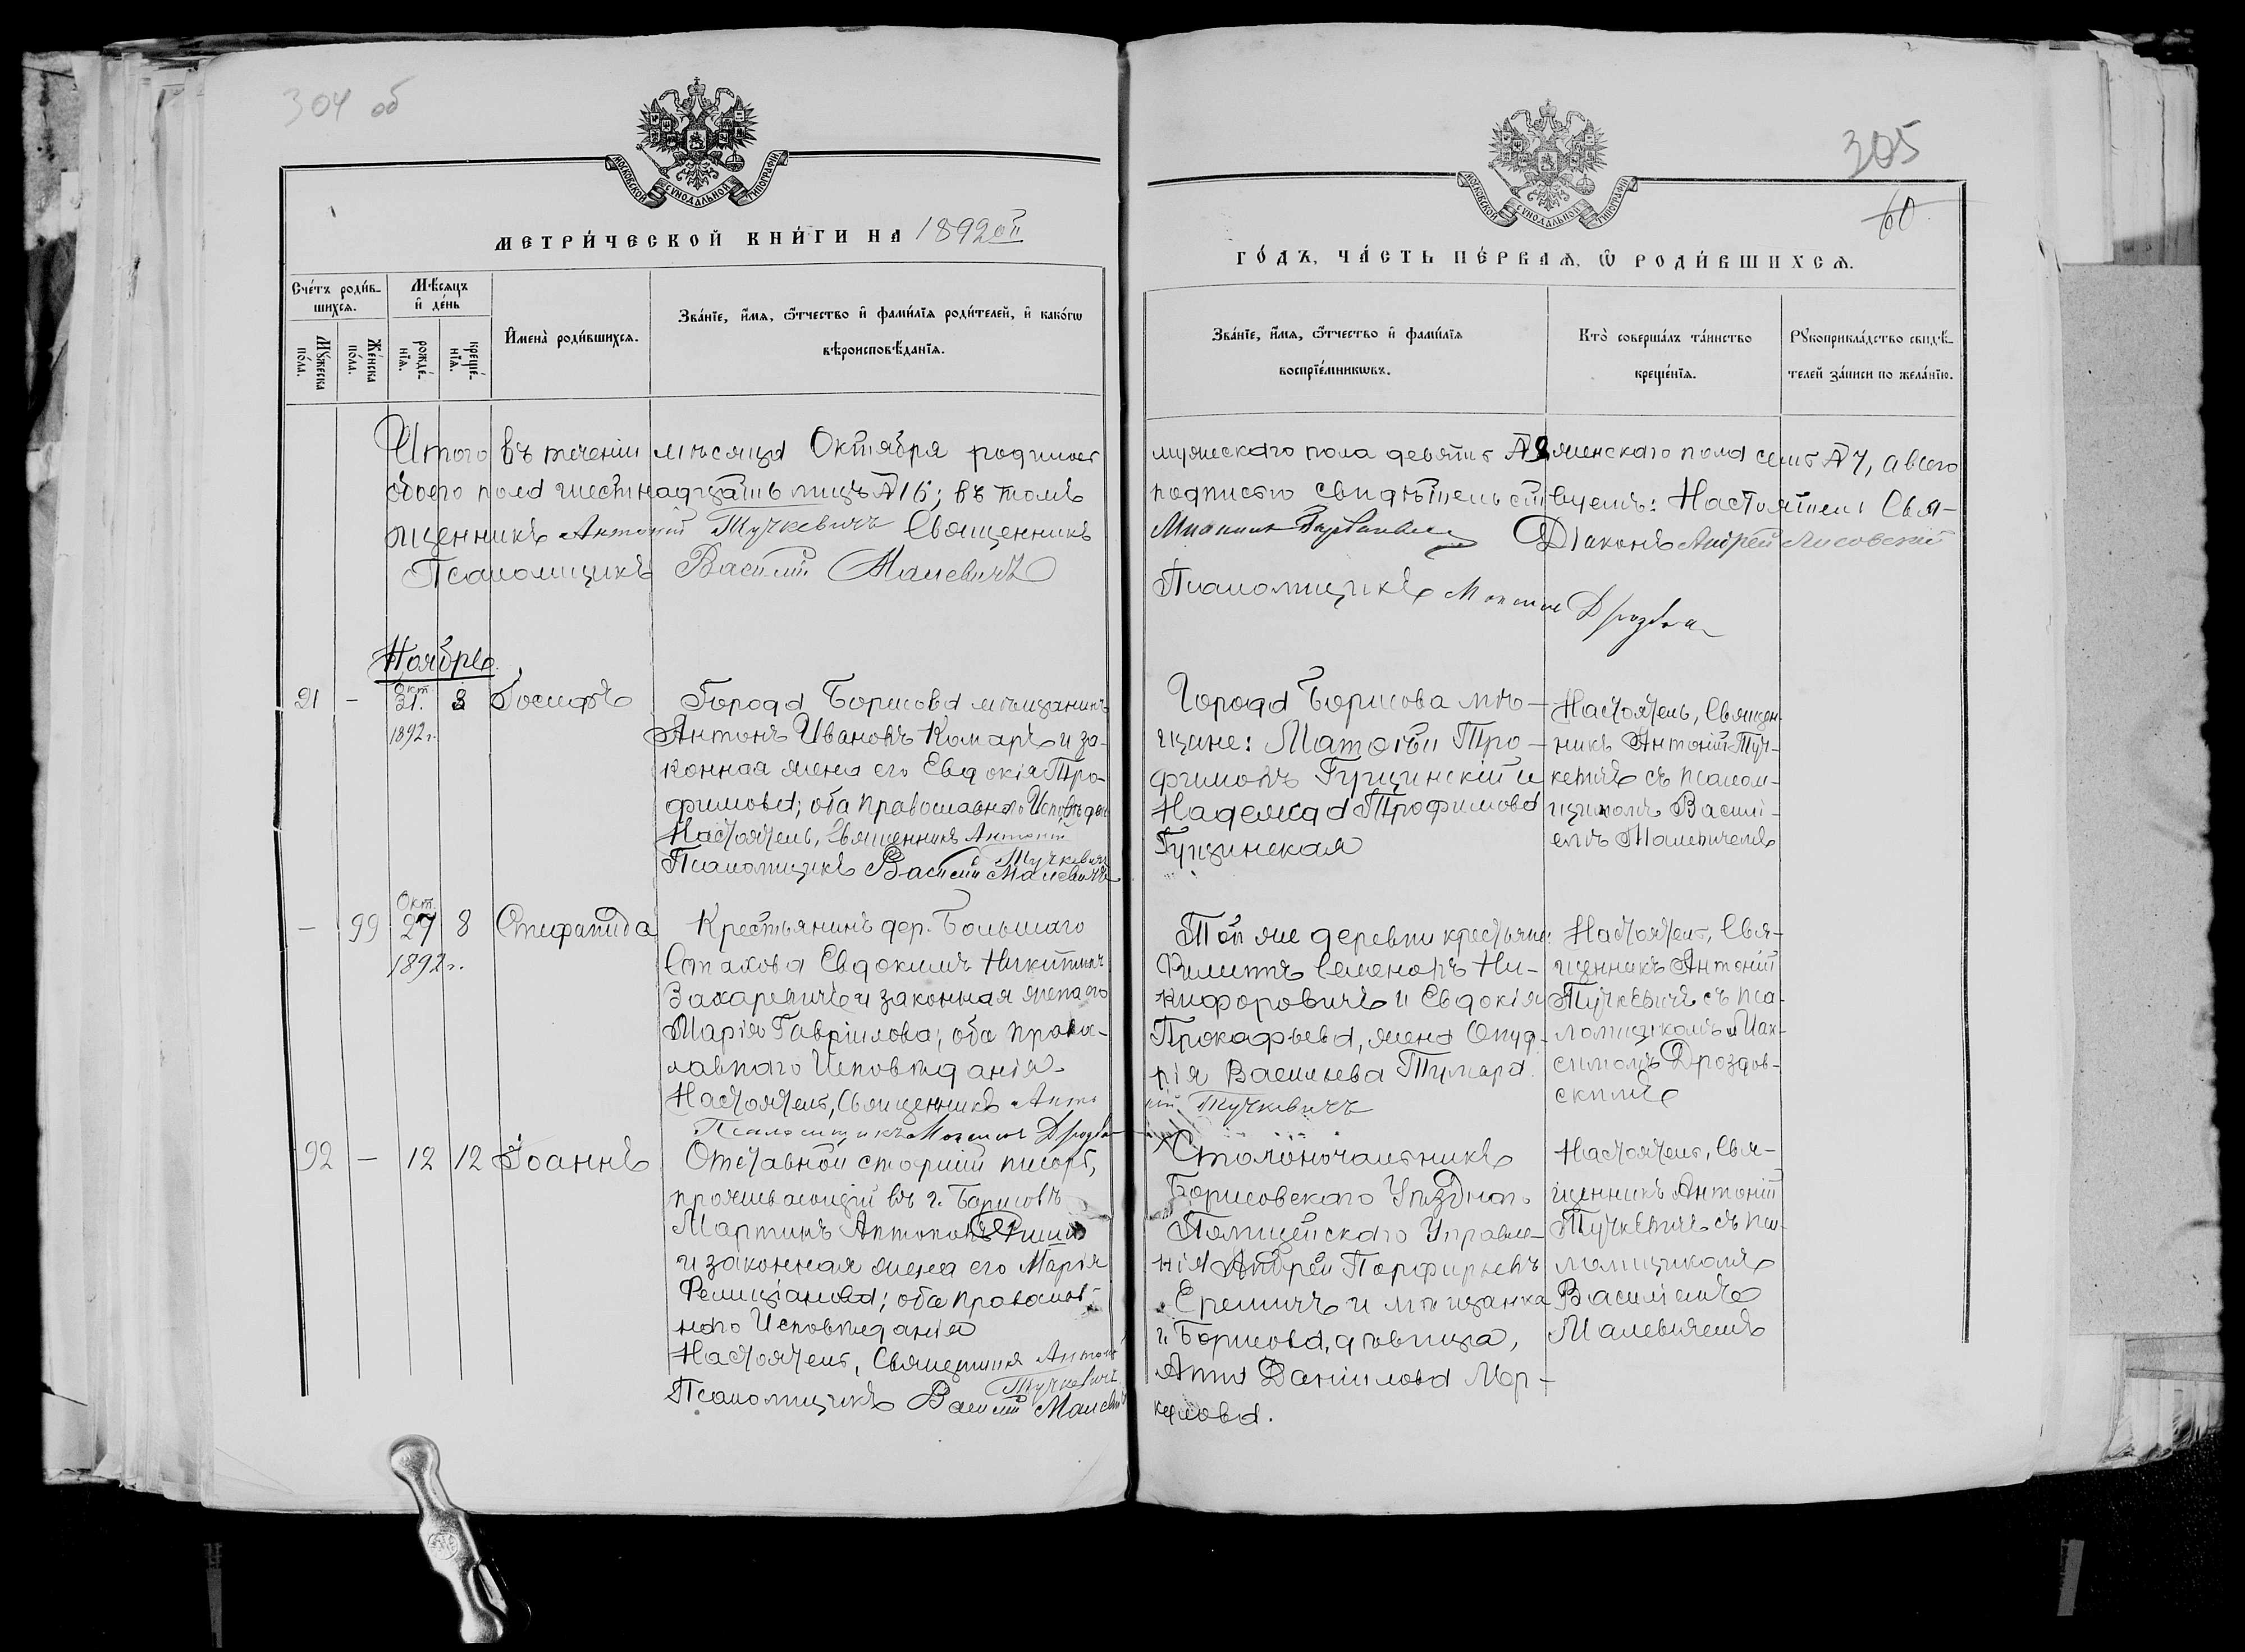 304 об
МОСКОВСКОЙ СѴНОДАЛЬНОЙ ТИПОГРАФІИ
МЕТРИ́ЧЕСКОЙ КНИ́ГИ НА 1892ой
Сче́тъ роди́в-
шихсѧ.
Мѣ́сѧцъ
и҆ де́нь
Мꙋ́жеска
по́ла.
Же́нска
по́ла.
рожде́-
нїѧ.
креще́-
нїѧ.
И҆мена̀ роди́вшихсѧ.
Зва́нїе, и҆́мѧ, ѻ҆́тчество и҆ фами́лїѧ роди́телей, и҆ како́гѡ
вѣроисповѣ́данїѧ.
Итого въ теченіи мѣсяца Октября родилось
обоего пола шестнадцать лицъ №16; въ томъ
щенникъ Антоній Тучкевичъ Священникъ
Псаломщикъ Василій Малевичъ
Ноябрь
91 - Окт. 31. 1892 г. 8 Іосифъ
Города Борисова мѣщанинъ
Антонъ Ивановъ Комаръ и за-
конная жена его Евдокія Тро-
фимова; оба православнаго Исповѣдан
Настоятель, Священникъ Антоній
Тучкевичъ
Псаломщикъ Василій Малевичъ
- 99 Окт. 27 1892 г. 8
Крестьянинъ дер. Большаго
Стахова Евдокимъ Никитинъ
Захаревичъ и законная жена его
Марія Гавріилова; оба право-
лавнаго Исповѣданія
Настоятель, Священникъ Анто
Псаломщикъ Максимъ
92 - 12 12 Іоаннъ
Отставной старшій писарь,
проживающій въ г. Борисовѣ
Мартинъ Антоновъ
и законная жена его Марія
Фелиціанова; оба православ-
наго Исповѣданія
Настоятель, Священникъ Антоній
Тучкевичъ
Псаломщикъ Василій Малевичъ
305
60
МОСКОВСКОЙ СѴНОДАЛЬНОЙ ТИПОГРАФІИ
ГО́ДЪ, ЧА́СТЬ ПЕ́РВАѦ, Ѡ҆ РОДИ́ВШИХСѦ.
Зва́нїе, и҆́мѧ, ѻ҆́тчество и҆ фами́лїѧ
воспрїе́мникѡвъ.
Кто̀ соверша́лъ та́инство
креще́нїѧ.
Рꙋкоприкла́дство свидѣ́-
телей за́писи по жела́нїю.
мужескаго пола девять №9 женскаго пола семь №7, а всего
подписью свидѣтельствуемъ: Настоятель Свя-
Діаконъ Андрей Лисовскій
Псаломщикъ
Города Борисова мѣ-
щане: Матѳій Тро-
фимовъ Гущинскій и
Надежда Трофимова
Гущинская
Настоятель, Священ-
никъ Антоній Туч-
кевичъ съ псалом-
щикомъ Василі-
емъ Малевичемъ
Той же деревни крестьяне:
Филиппъ Семеновъ Ни-
кифоровичъ и Евдокія
Прокофьева, жена Онуф-
рія Васильева Тумара
ній Тучкевичъ
Настоятель, Свя-
щенникъ Антоній
Тучкевичъ съ пса-
ломщикомъ Мак-
симомъ Дроздов-
скимъ
Столоначальникъ
Борисовскаго Уѣзднаго
Полицейскаго Управле-
нія Андрей Порфирьевъ
Еремичъ и мѣщанка
г. Борисова, дѣвица,
Анна Даніилова Мар-
келова.
Настоятель, Свя-
щенникъ Антоній
Тучкевичъ съ пса-
ломщикомъ
Василіемъ
Малевичемъ